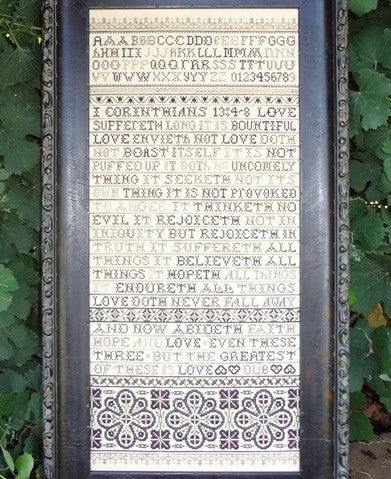 AAABBBCCCDDDEEEFFFGGG
HHHIIIJJJKKKLLLMMMNNN
OOOPPPQQQRRRSSSTTTUUU
VVVWWWXXXYYYZZZ0123456789
I CORINTHIANS 13:4-8 LOVE
SUFFERETH LONG IT IS BOUNTIFUL
LOVE ENVIETH NOT LOVE DOTH
NOT BOAST ITSELF IT IS NOT
PUFFED UP IT DOTH NO UNCOMELY
THING IT SEEKETH NOT ITS
OWN THING IT IS NOT PROVOKED
TO ANGER IT THINKETH NO
EVIL IT REJOICETH NOT IN
INIQUITY BUT REJOICETH IN
TRUTH IT SUFFERETH ALL
THINGS IT BELIEVETH ALL
THINGS IT HOPETH ALL THINGS
IT ENDURETH ALL THINGS
LOVE DOTH NEVER FALL AWAY
AND NOW ABIDETH FAITH
HOPE AND LOVE EVEN THESE
THREE BUT THE GREATEST
OF THESE IS LOVE